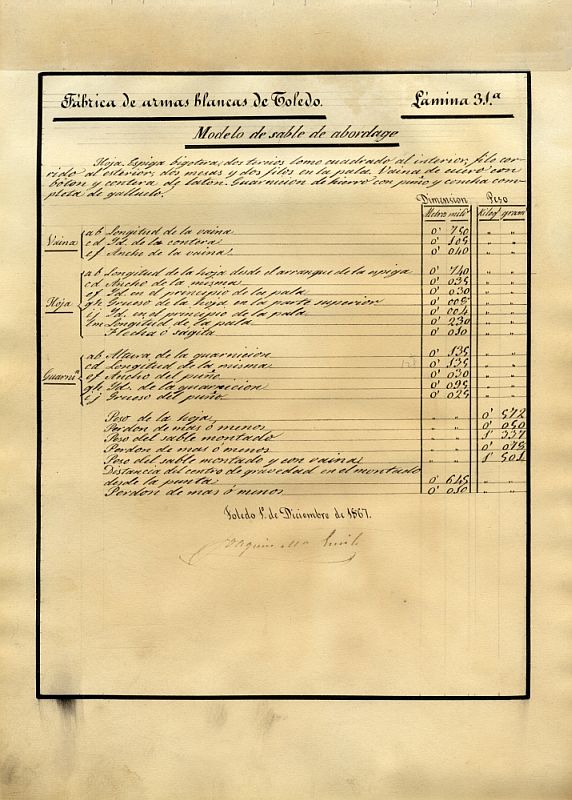 Fábrica de armas blancas de Toledo. Lámina 31.ª
Modelo de sable de abordage
Hoja. Espiga bigotera, dos tercios lomo cuadrado al interior, filo cor-
rido al esterior, dos mesas y dos filos en la pala. Vaina de cuero con
boton y contera de laton. Guarnicion de hierro con puño y concha com-
pleta de galluelo.
Dimension Peso
Metro milᵒ Kilogˢ gramˢ
Vaina
ab Longitud de la vaina 0' 750 " "
cd Id. de la contera 0' 105 " "
ef Ancho de la vaina 0' 040 " "
Hoja
ab Longitud de la hoja desde el arranque de la espiga 0' 740 " "
cd Ancho de la misma 0' 035 " "
ef Id. en el principio de la pala 0' 030 " "
gh Grueso de la hoja en la parte superior 0' 008 " "
ij Id. en el principio de la pala 0' 004 " "
lm Longitud de la pala 0' 230 " "
Flecha ó sagita 0' 010 " "
Guarnⁿ
ab Altura de la guarnicion 0' 135 " "
cd Longitud de la misma 0' 135 " "
ef Ancho del puño 0' 030 " "
gh Id. de la guarnicion 0' 095 " "
ij Grueso del puño 0' 025 " "
Peso de la hoja " " 0' 572
Perdon de mas ó menos " " 0' 050
Peso del sable montado " " 1' 337
Perdon de mas ó menos " " 0' 078
Peso del sable montado y con vaina " " 1' 501
Distancia del centro de gravedad en el montado
desde la punta 0' 645 " "
Perdon de mas ó menos 0' 010 " "
Toledo 1º. de Diciembre de 1867.
Joaquin